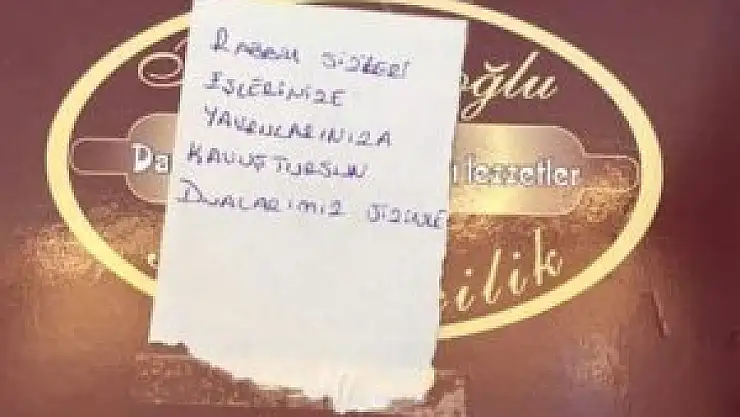 RABBİM SİZLERİ
EŞLERİNİZE
YAVRULARINIZA
KAVUŞTURSUN
DUALARIMIZ SİZİNLE
oğlu
lezzetler